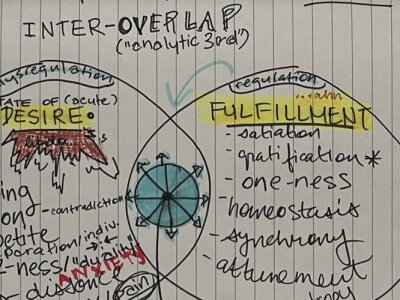 INTER-OVERLAP
("analytic 3rd")
dysregulation
regulation
...ahh
STATE OF (acute)
DESIRE.
FULFILLMENT
- satiation
- gratification*
- one-ness
- homeostasis
- synchrony
- attunement
- contradiction
paration/indiv.
2-ness/"duality"
ANXIETY
- dissonance
pain